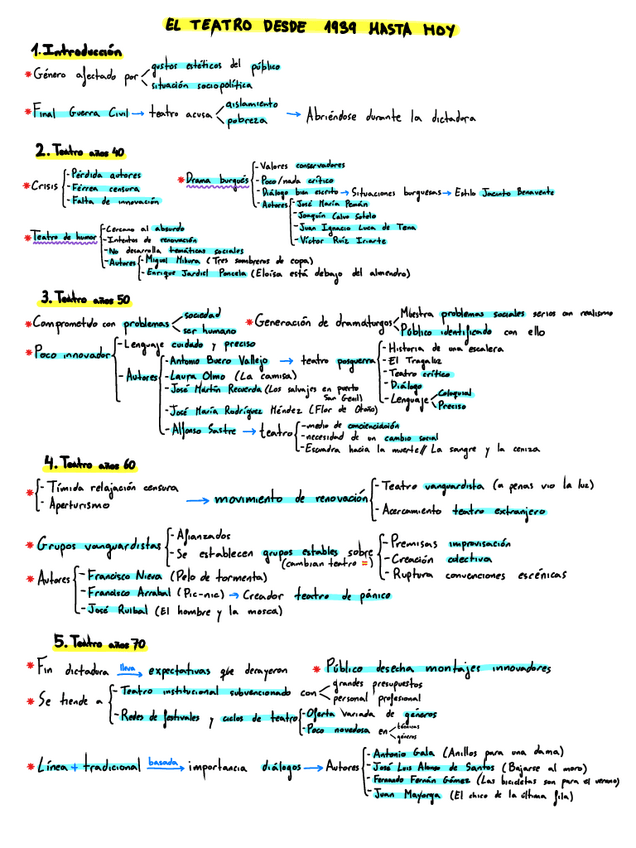 EL TEATRO DESDE 1939 HASTA HOY
1. Introducción
* Género afectado por < gustos estéticos del público
situación sociopolítica
* Final Guerra Civil → teatro acusa < aislamiento
pobreza
→ Abriéndose durante la dictadura
2. Teatro años 40
* Crisis
- Pérdida autores
- Férrea censura
- Falta de innovación
* Drama burgués
- Valores conservadores
- Poco/nada crítico
- Diálogo bien escrito → Situaciones burguesas → Estilo Jacinto Benavente
- Autores
- José María Pemán
- Joaquín Calvo Sotelo
- Juan Ignacio Luca de Tena
- Víctor Ruiz Iriarte
* Teatro de humor
- Cercano al absurdo
- Intentos de renovación
- No desarrolla temáticas sociales
- Autores
- Miguel Mihura (Tres sombreros de copa)
- Enrique Jardiel Poncela (Eloísa está debajo del almendro)
3. Teatro años 50
* Comprometido con problemas < sociedad
ser humano
* Generación de dramaturgos < Muestra problemas sociales serios con realismo
Público identificado con ello
* Poco innovador
- Lenguaje cuidado y preciso
- Autores
- Antonio Buero Vallejo → teatro posguerra
- Historia de una escalera
- El Tragaluz
- Teatro crítico
- Diálogo
- Lenguaje < Coloquial
Preciso
- Laura Olmo (La camisa)
- José Martín Recuerda (Los salvajes en puerto
San Genil)
- José María Rodríguez Méndez (Flor de Otoño)
- Alfonso Sastre → teatro
- medio de concienciación
- necesidad de un cambio social
- Escuadra hacia la muerte // La sangre y la ceniza
4. Teatro años 60
* - Tímida relajación censura
- Aperturismo
→ movimiento de renovación
- Teatro vanguardista (a penas vio la luz)
- Acercamiento teatro extranjero
* Grupos vanguardistas
- Afianzados
- Se establecen grupos estables sobre
(cambian teatro =)
- Premisas improvisación
- Creación colectiva
- Ruptura convenciones escénicas
* Autores
- Francisco Nieva (Pelo de tormenta)
- Francisco Arrabal (Pic-nic) → Creador teatro de pánico
- José Ruibal (El hombre y la mosca)
5. Teatro años 70
* Fin dictadura lleva → expectativas que decayeron
* Público desecha montajes innovadores
* Se tiende a
- Teatro institucional subvencionado con < grandes presupuestos
personal profesional
- Redes de festivales y ciclos de teatro
- Oferta variada de géneros
- Poco novedosa en < técnicas
géneros
* Línea + tradicional basada → importancia diálogos → Autores
- Antonio Gala (Anillos para una dama)
- José Luis Alonso de Santos (Bajarse al moro)
- Fernando Fernán Gómez (Las bicicletas son para el verano)
- Juan Mayorga (El chico de la última fila)